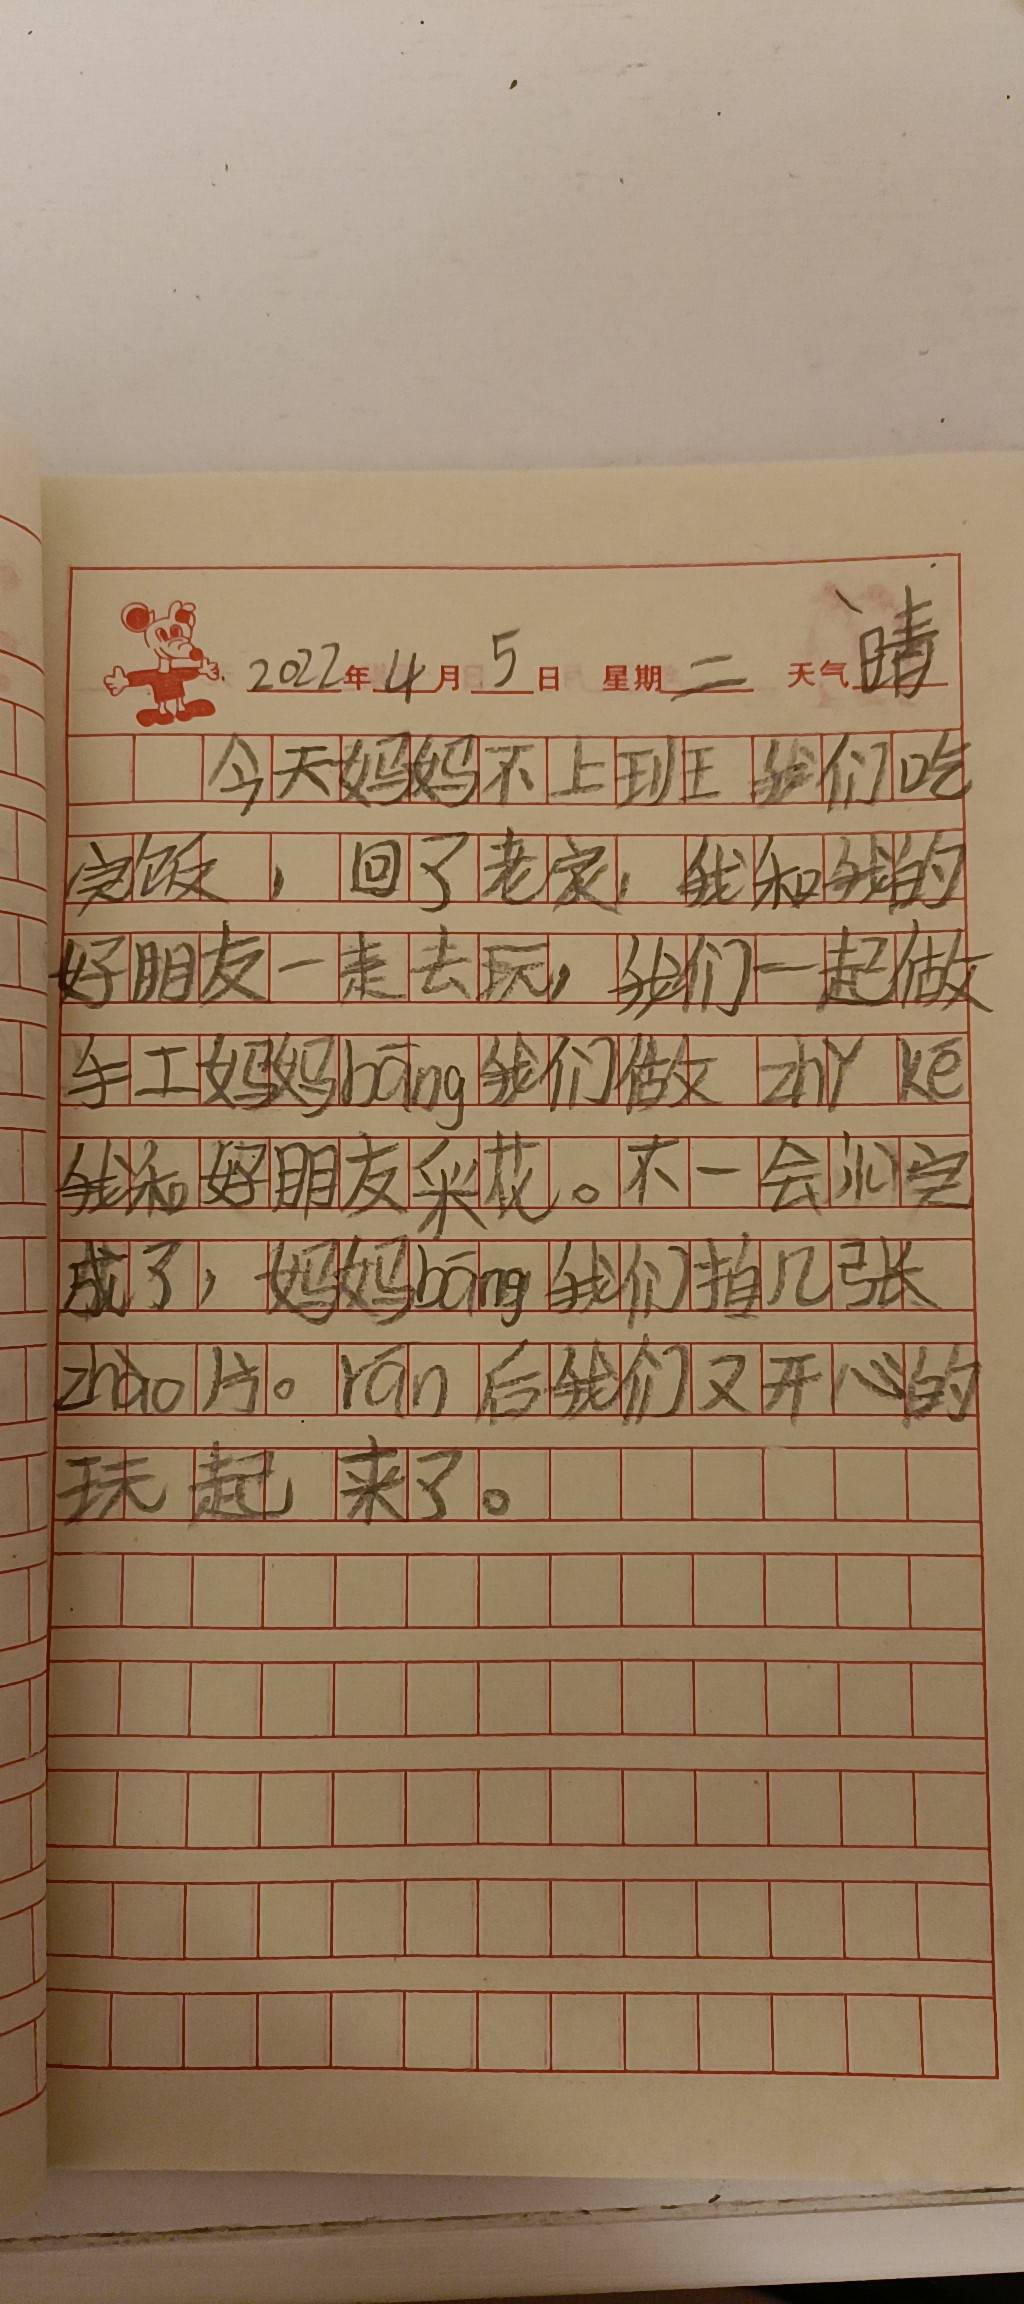 2022年4月5日 星期二 天气晴
今天妈妈不上班 我们吃
完饭，回了老家，我和我的
好朋友一走去玩，我们一起做
手工妈妈bāng我们做 zhǐ kē
我和好朋友采花。不一会 完
成了，妈妈bāng我们拍几张
zhào片。rán后我们又开心的
玩起来了。